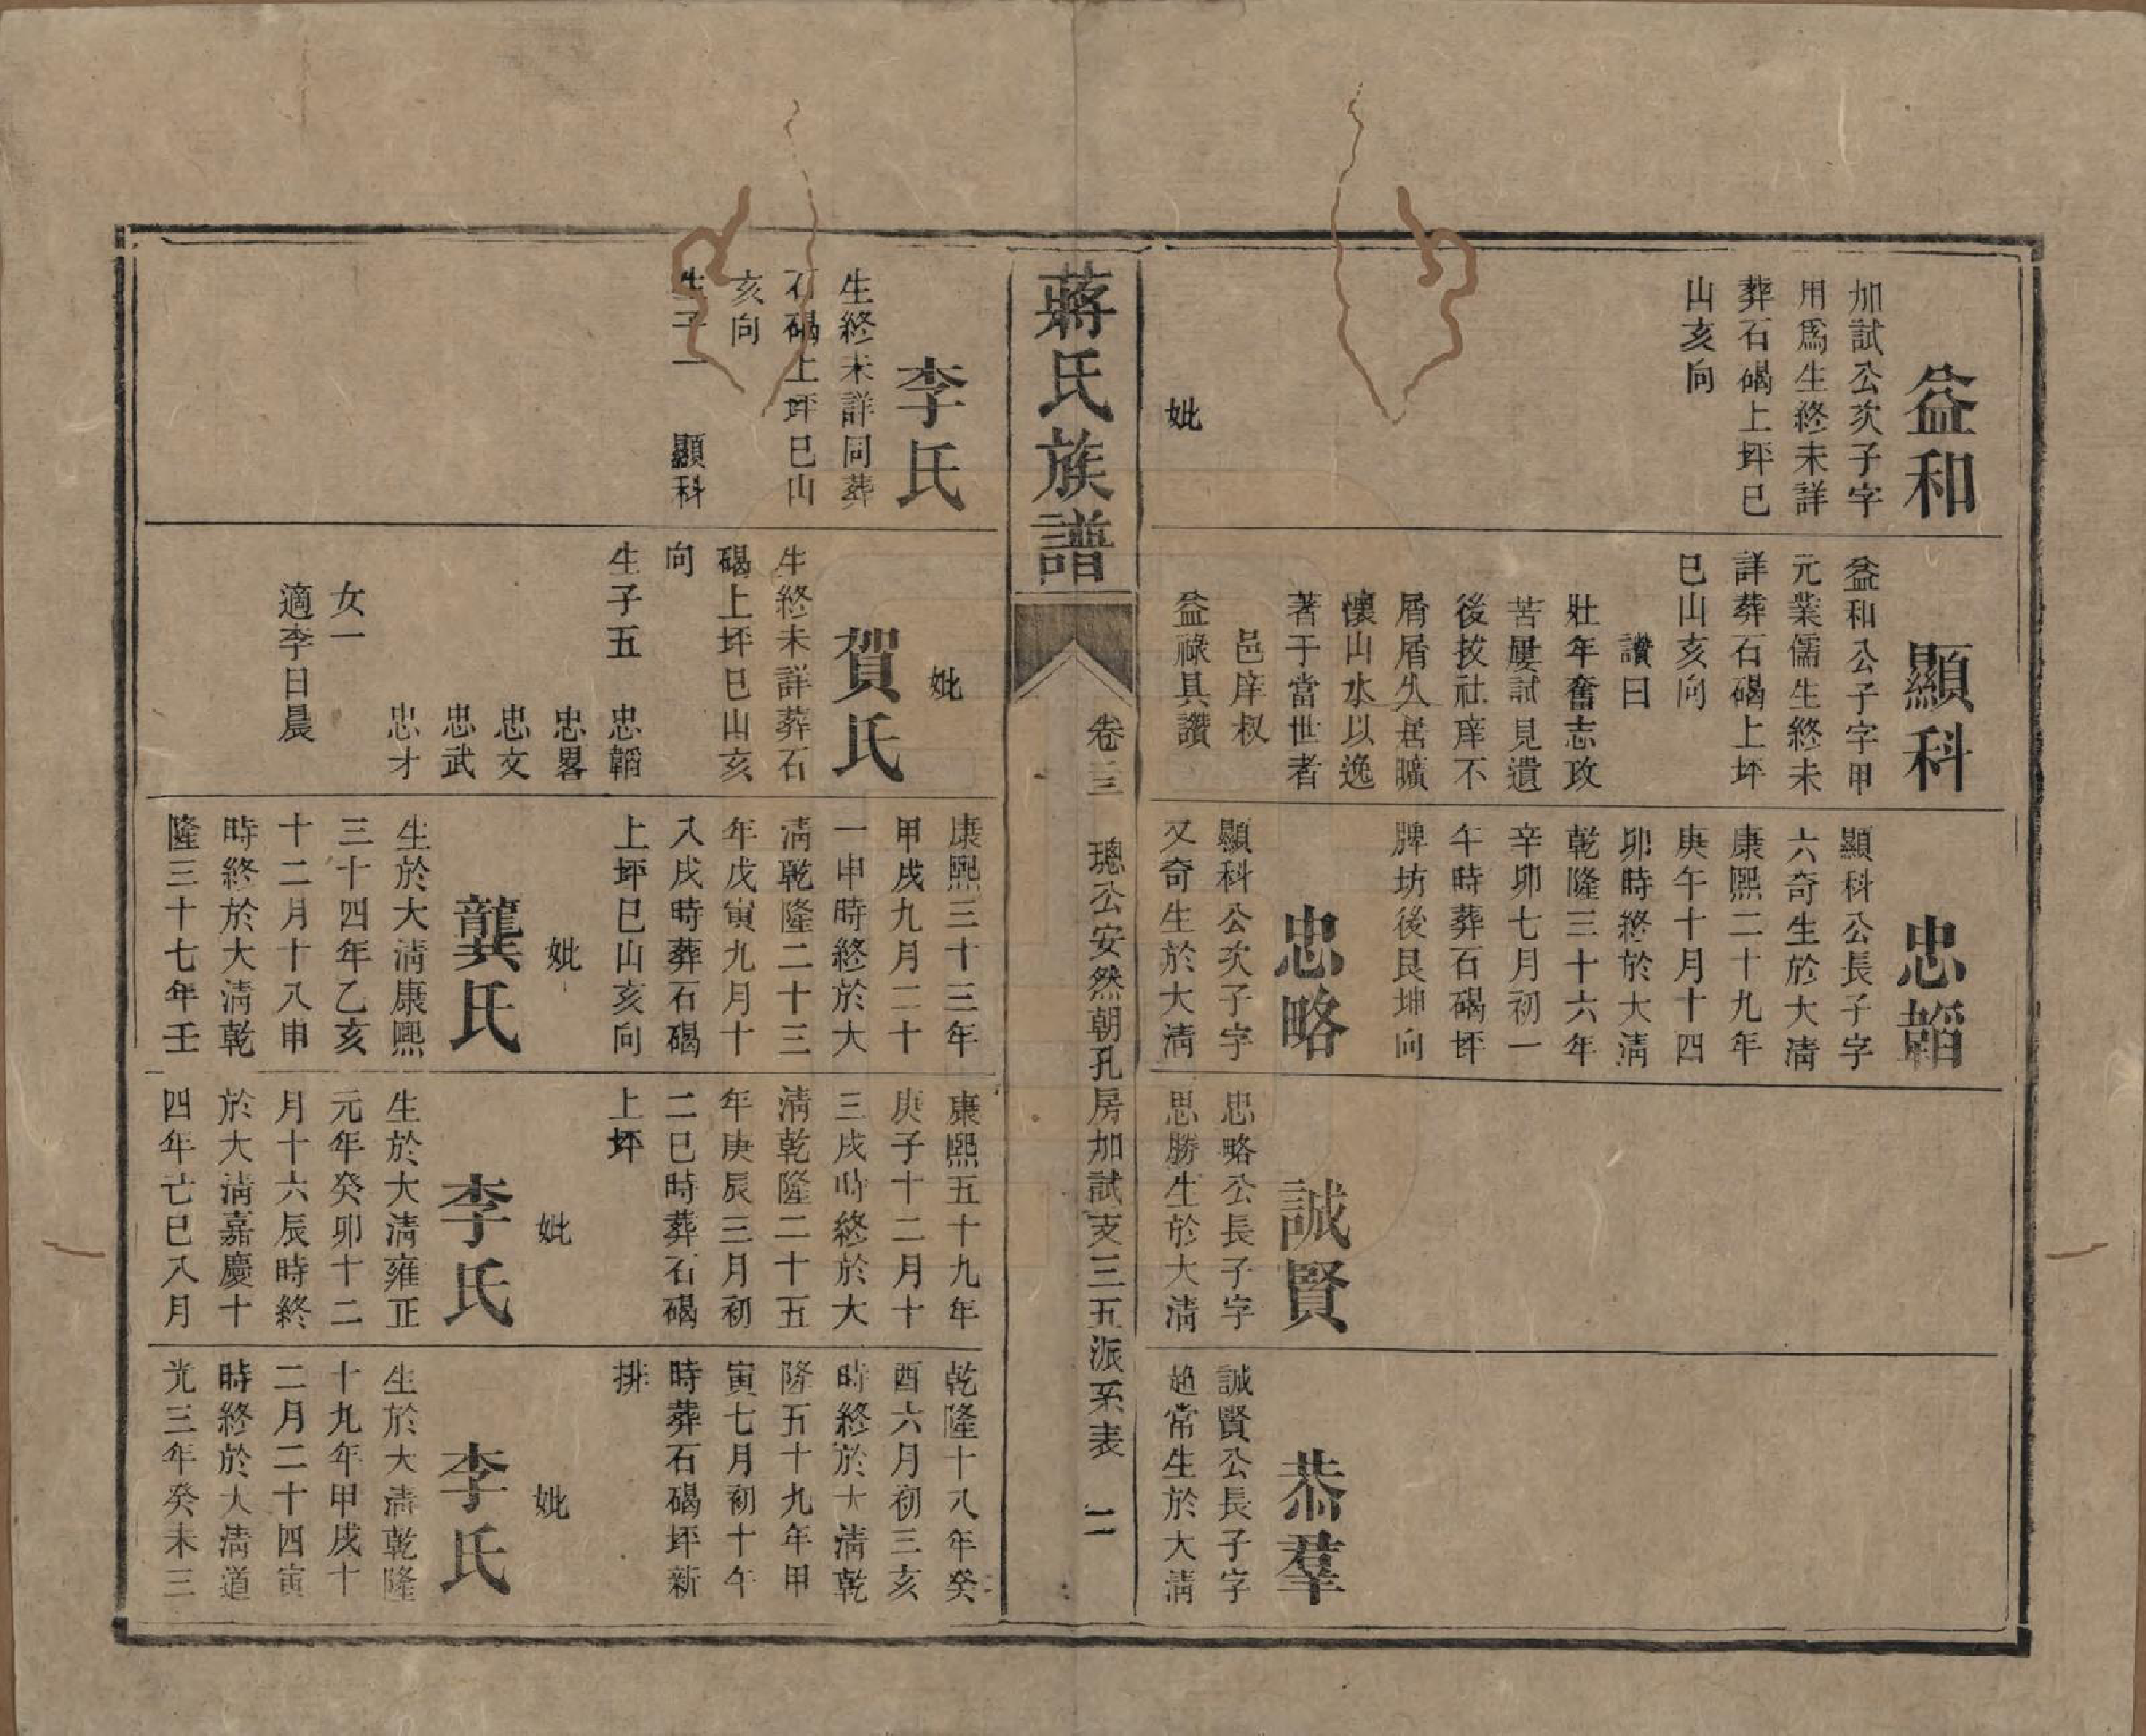 益和
加試公次子字
用爲生終未詳
葬石碣上坪巳
山亥向
妣
顯科
益和公子字甲
元業儒生終未
詳葬石碣上坪
巳山亥向
讚曰
壯年奮志攻
苦屢試見遺
後拔社庠不
屑屑久居曠
懷山水以逸
著于當世者
邑庠叔
益祿具讚
忠韜
顯科公長子字
六奇生於大淸
康熙二十九年
庚午十月十四
卯時終於大淸
乾隆三十六年
辛卯七月初一
午時葬石碣坪
牌坊後艮坤向
忠略
顯科公次子字
又奇生於大淸
誠賢
忠略公長子字
思勝生於大淸
恭羣
誠賢公長子字
超常生於大淸
蔣氏族譜
卷三 璁公安然朝孔房加試支三五派系表 二
李氏
生終未詳同葬
石碣上坪巳山
亥向
生子一 顯科
妣
賀氏
生終未詳葬石
碣上坪巳山亥
向
生子五 忠韜
忠畧
忠文
忠武
忠才
女一
適李日晨
康熙三十三年
甲戌九月二十
一申時終於大
淸乾隆二十三
年戊寅九月十
八戌時葬石碣
上坪巳山亥向
妣
龔氏
生於大淸康熙
三十四年乙亥
十二月十八申
時終於大淸乾
隆三十七年壬
康熙五十九年
庚子十二月十
三戌時終於大
淸乾隆二十五
年庚辰三月初
二巳時葬石碣
上坪
妣
李氏
生於大淸雍正
元年癸卯十二
月十六辰時終
於大淸嘉慶十
四年亡巳八月
乾隆十八年癸
酉六月初三亥
時終於大淸乾
隆五十九年甲
寅七月初十午
時葬石碣坪新
排
妣
李氏
生於大淸乾隆
十九年甲戌十
二月二十四寅
時終於大淸道
光三年癸未三